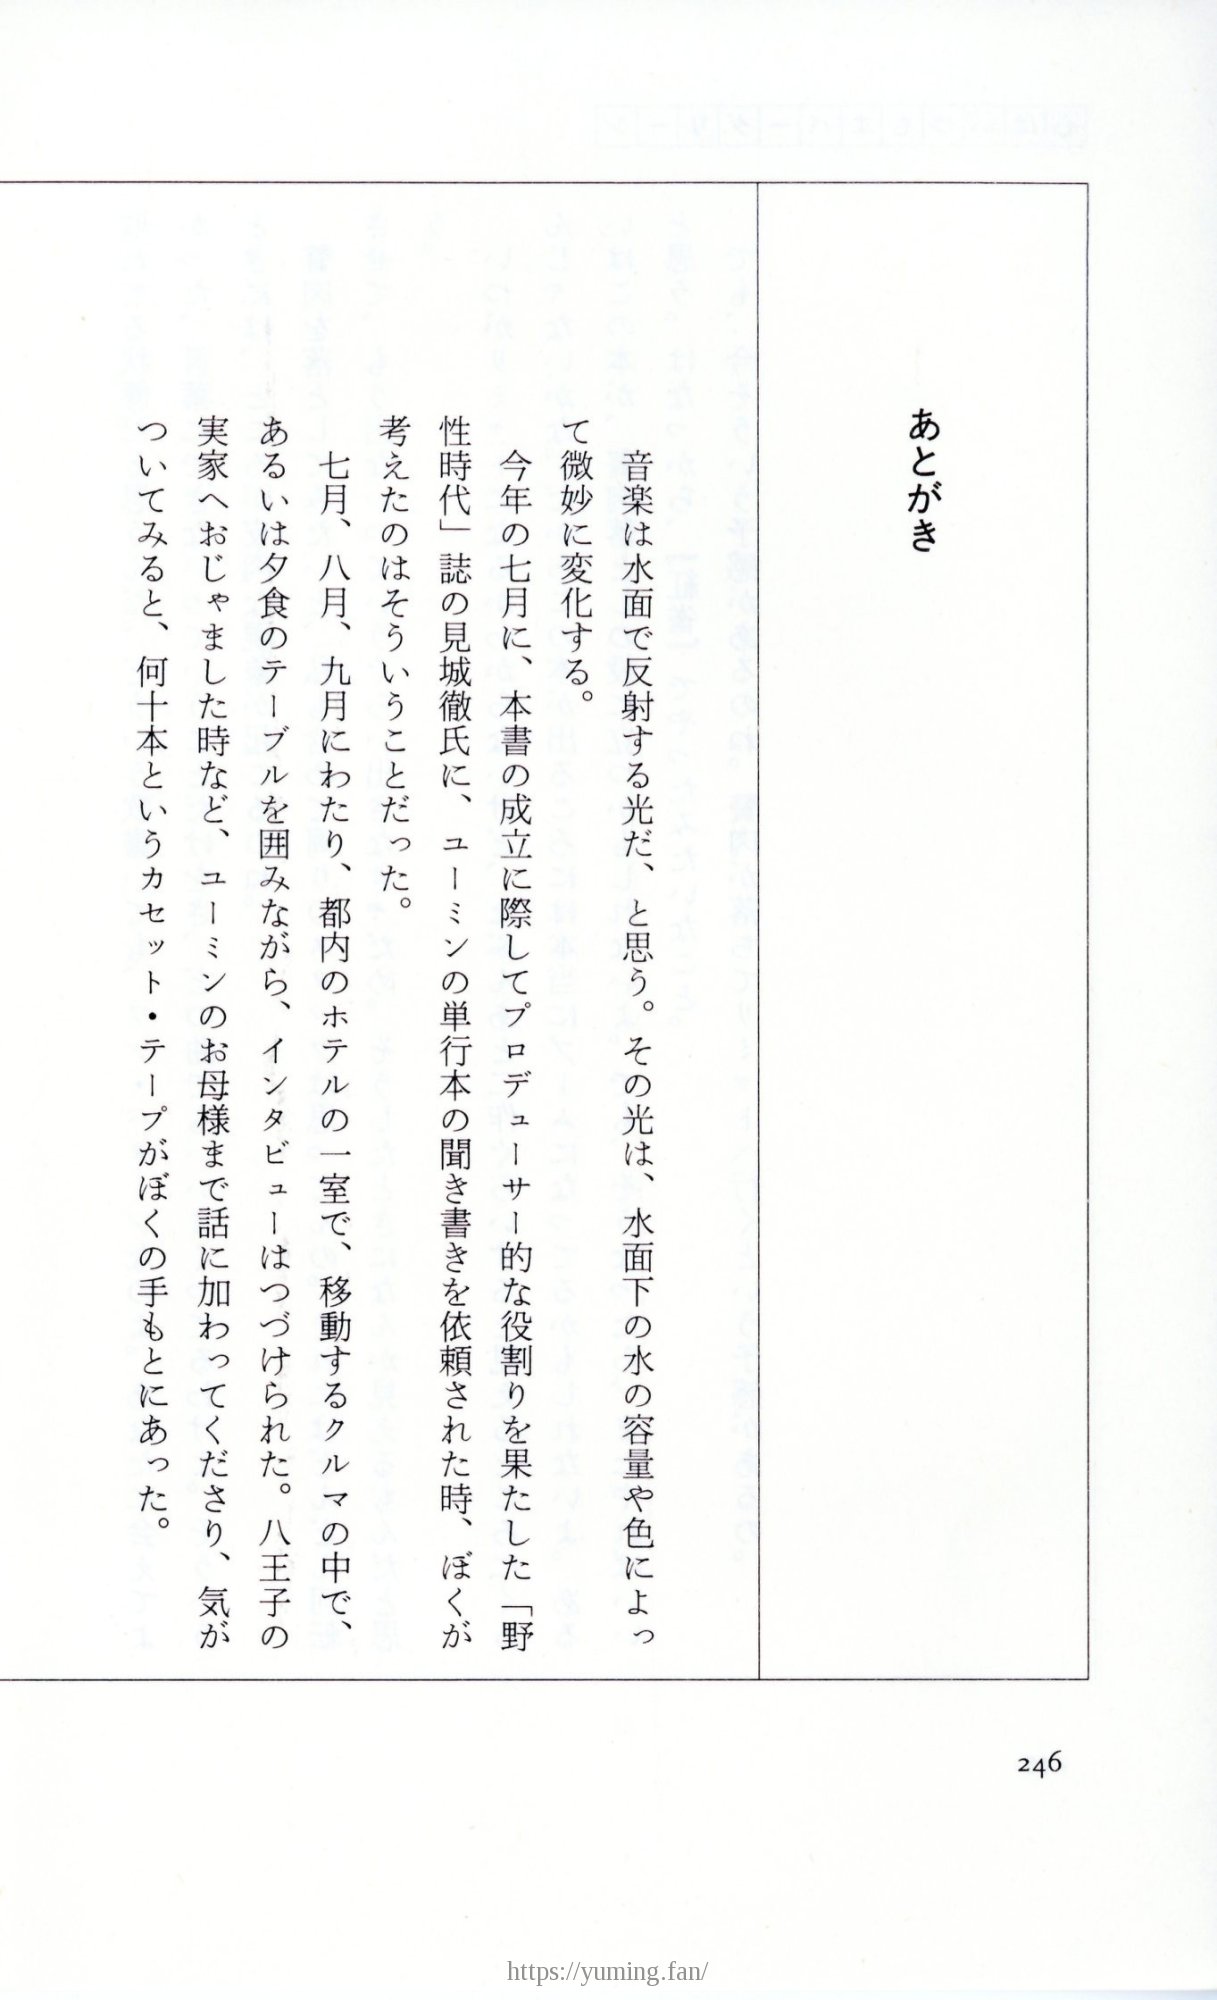 あとがき
　音楽は水面で反射する光だ、と思う。その光は、水面下の水の容量や色によっ
て微妙に変化する。
　今年の七月に、本書の成立に際してプロデューサー的な役割りを果たした「野
性時代」誌の見城徹氏に、ユーミンの単行本の聞き書きを依頼された時、ぼくが
考えたのはそういうことだった。
　七月、八月、九月にわたり、都内のホテルの一室で、移動するクルマの中で、
あるいは夕食のテーブルを囲みながら、インタビューはつづけられた。八王子の
実家へおじゃました時など、ユーミンのお母様まで話に加わってくださり、気が
ついてみると、何十本というカセット・テープがぼくの手もとにあった。
246
https://yuming.fan/